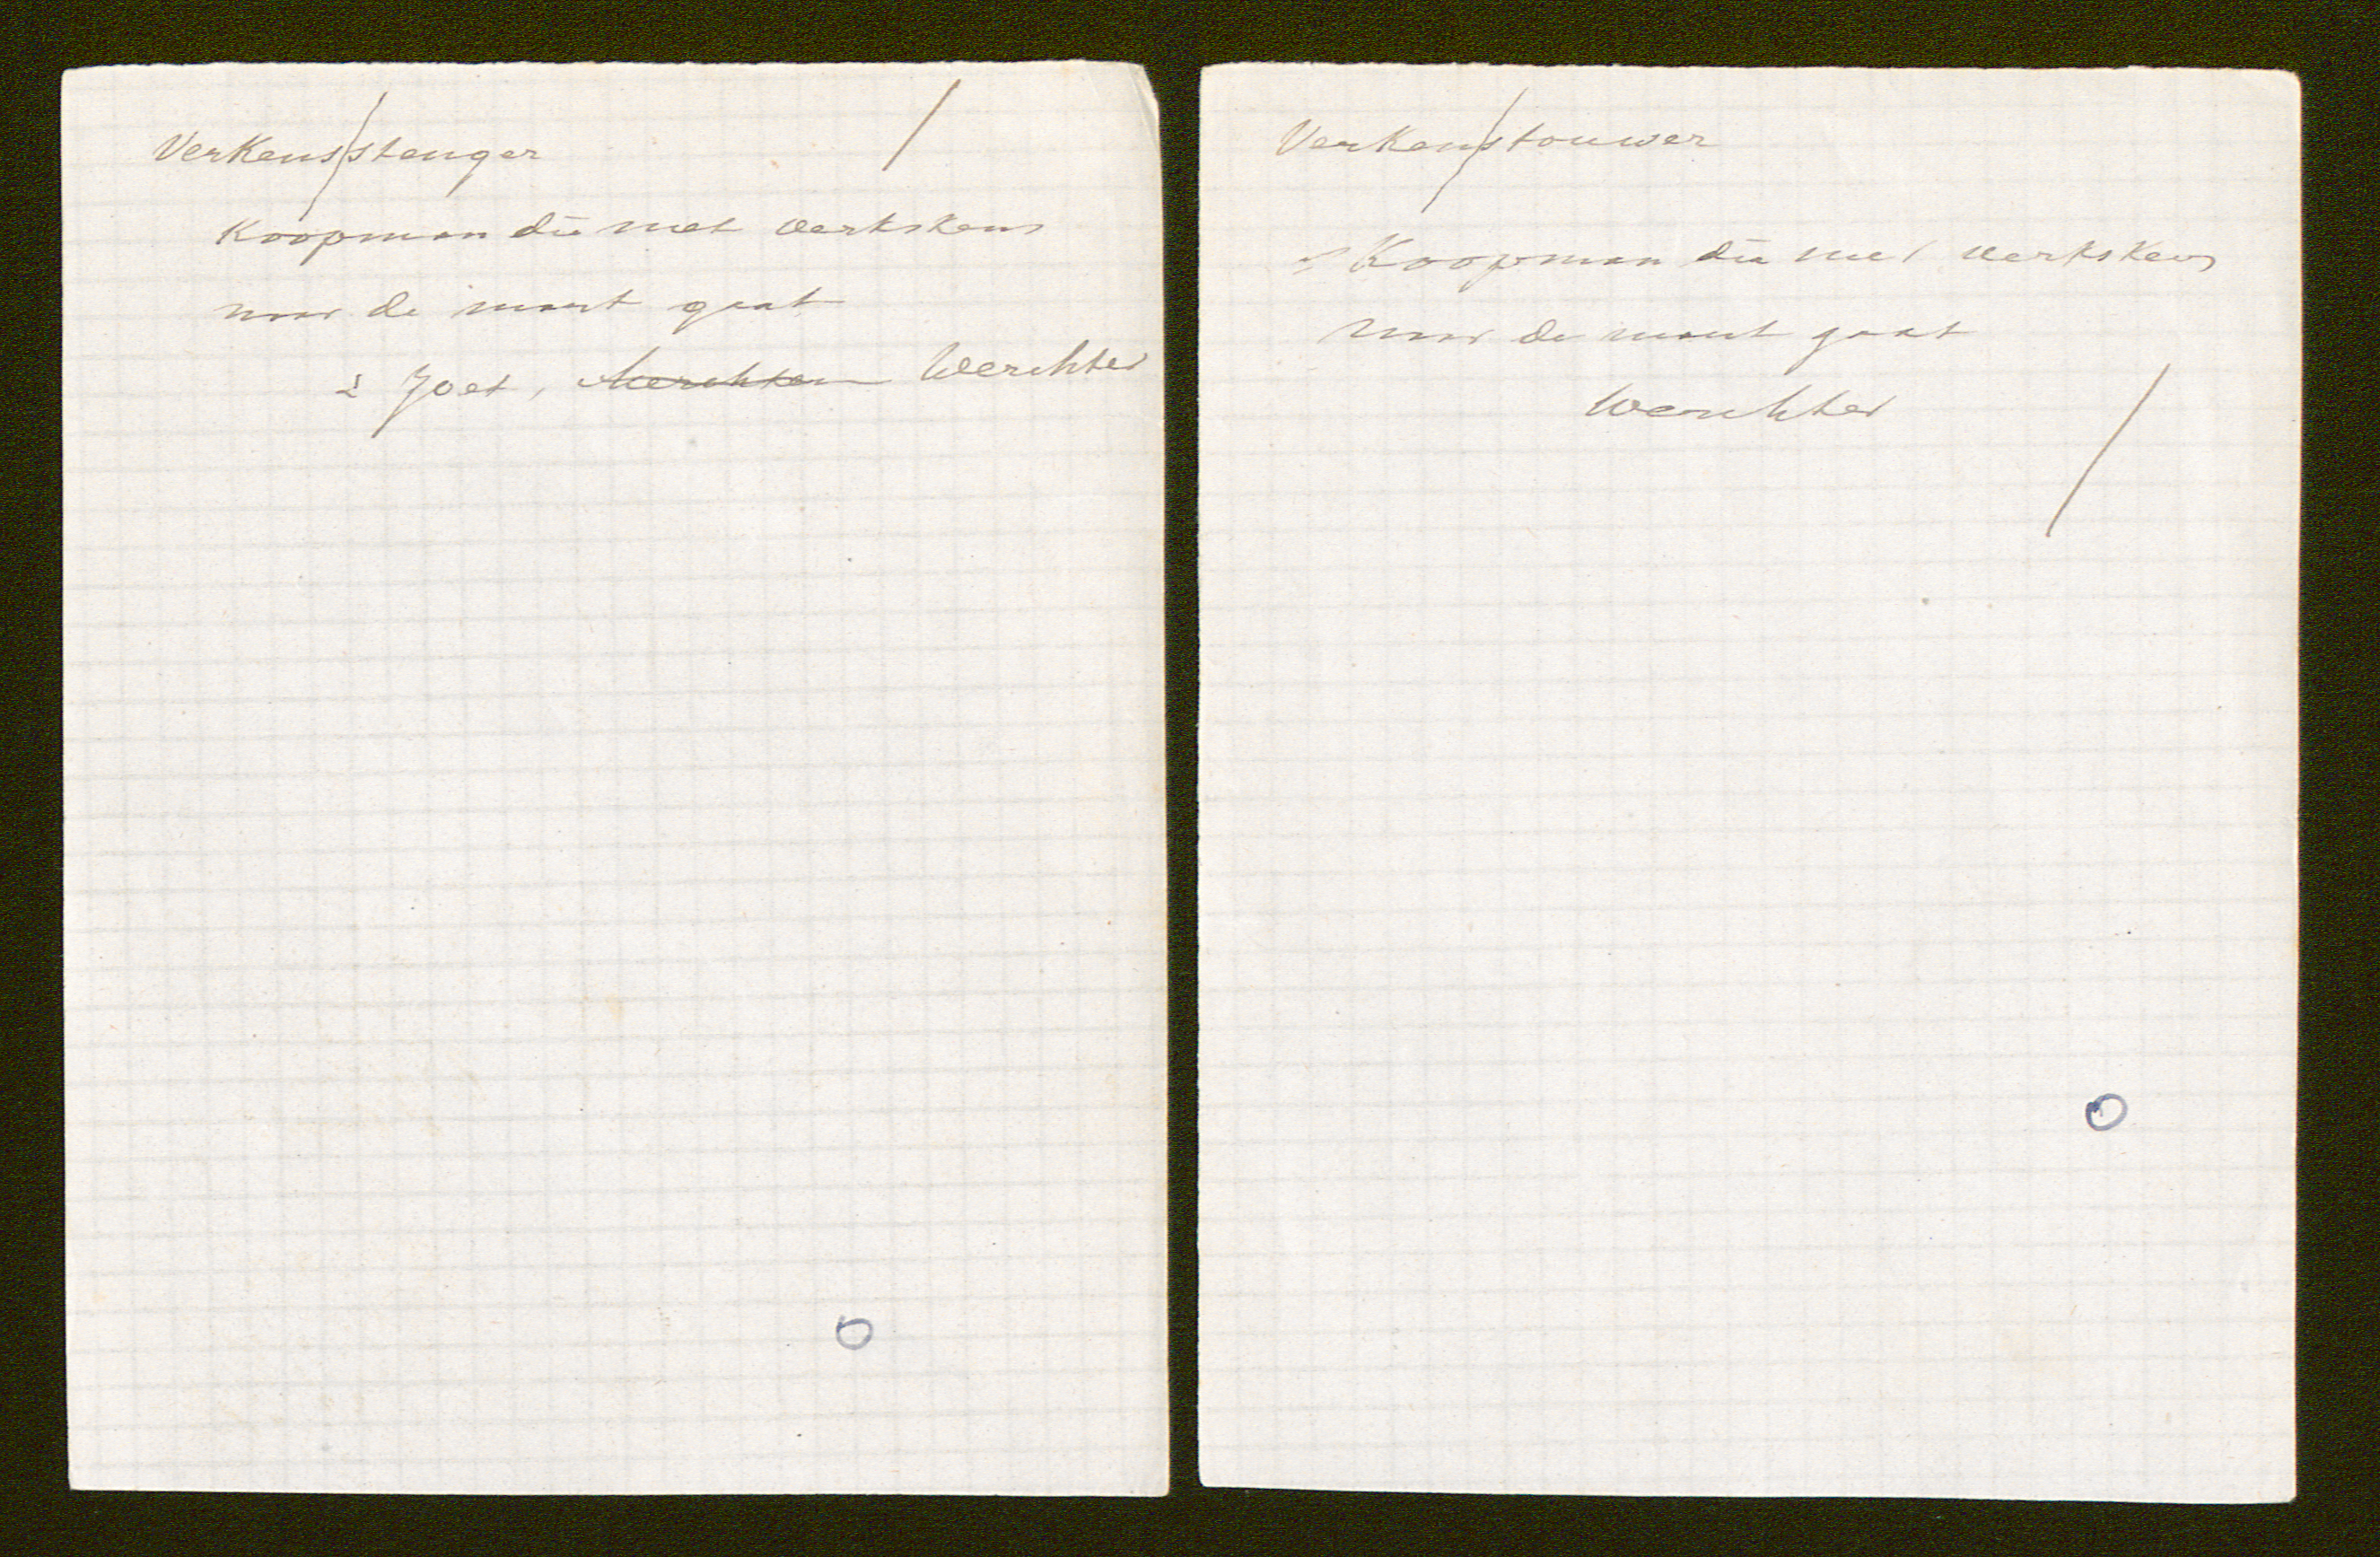 Verkens/stenger
Koopman die met verkskens
naar de mart gaat
± Joet, Merchten Werchter
Verkens/touwer
Koopman die met verkskens
naar de mart gaat
Werchter